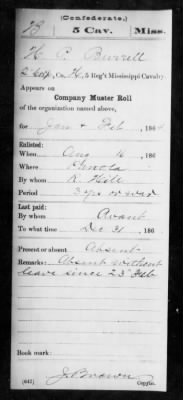 (Confederate.)
B 5 Cav. Miss.
H. P. Burrell
Co. H, 5 Reg't Mississippi Cavalry
Appears on
Company Muster Roll
of the organization named above,
for Jan & Feb, 1864
Enlisted:
When Aug, 186
Where
By whom R. Hill
Period 3 yrs or war
Last paid:
By whom Avant
To what time Dec 31, 186
Present or absent Absent
Remarks: Absent without
leave since 23" Feb
Book mark:
(642) J. Brown
Copyist.